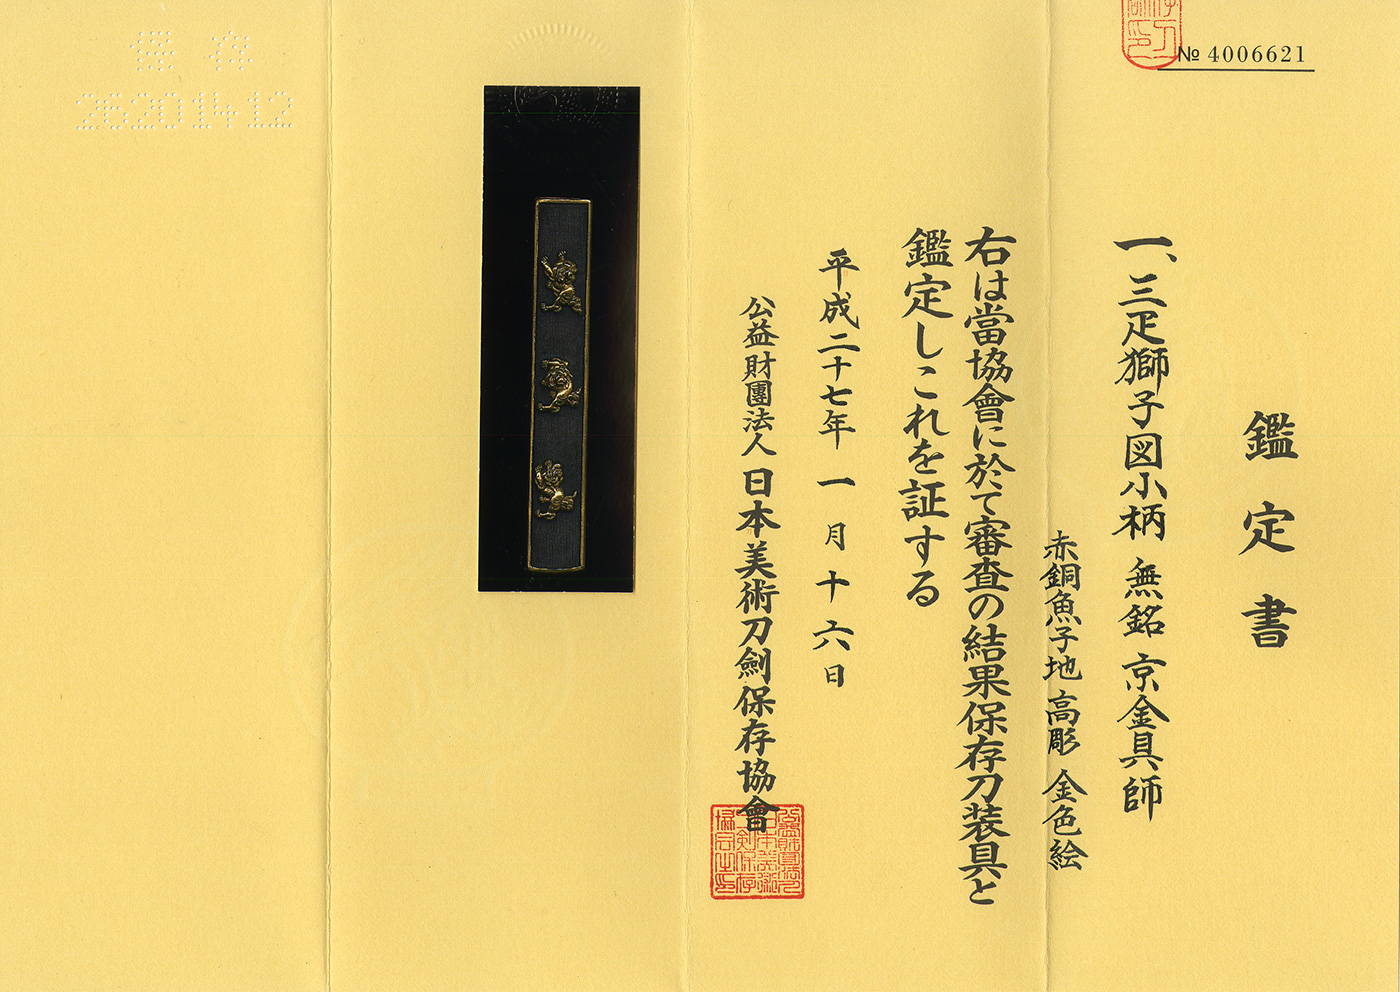 № 4006621
鑑定書
一、三疋獅子図小柄 無銘 京金具師
赤銅魚子地 高彫 金色絵
右は當協會に於て審査の結果保存刀装具と
鑑定しこれを証する
平成二十七年一月十六日
公益財團法人 日本美術刀劍保存協會
保存
26201412